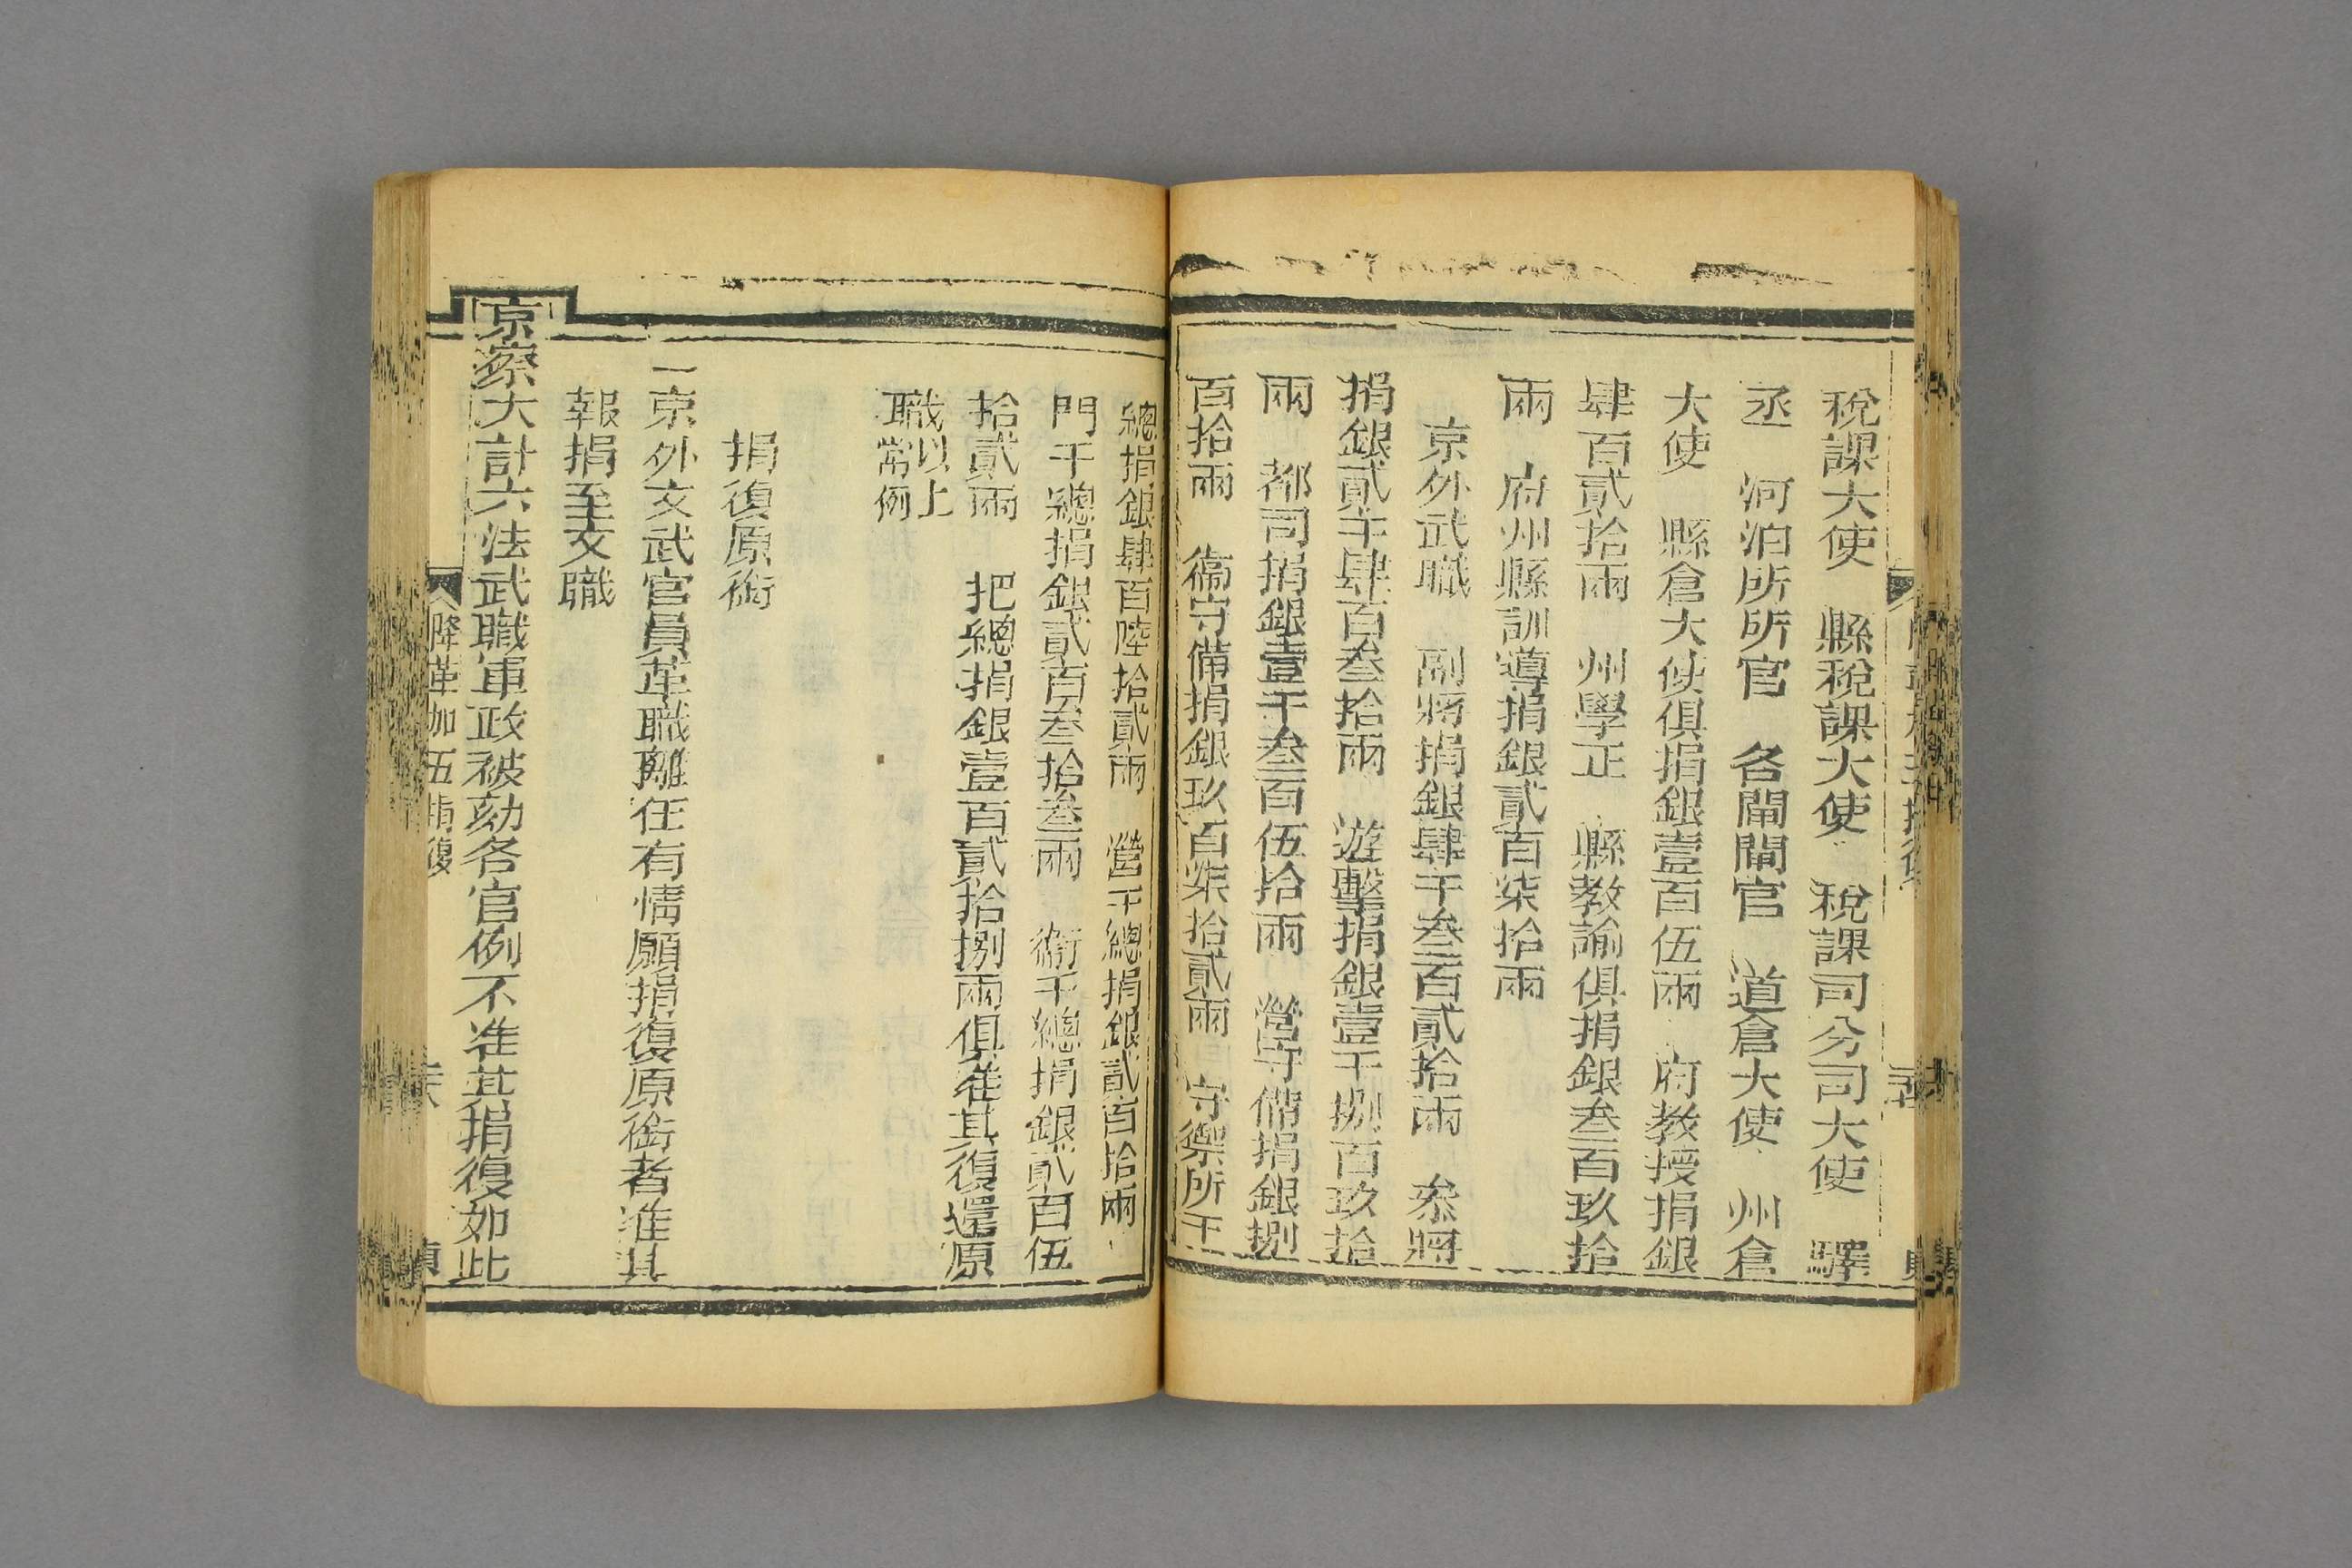 稅課大使　縣稅課大使　稅課司分司大使　驛
丞　河泊所所官　各閘閘官　道倉大使　州倉
大使　縣倉大使俱捐銀壹百伍兩　府教授捐銀
肆百貳拾兩　州學正　縣教諭俱捐銀叁百玖拾
兩　府州縣訓導捐銀貳百柒拾兩
京外武職　副將捐銀肆千叁百貳拾兩　叅將
捐銀貳千肆百叁拾兩　遊擊捐銀壹千捌百玖拾
兩　都司捐銀壹千叁百伍拾兩　營守備捐銀捌
百拾兩　衞守備捐銀玖百柒拾貳兩　守禦所千
總捐銀肆百陸拾貳兩　營千總捐銀貳百拾兩
門千總捐銀貳百叁拾叁兩　衞千總捐銀貳百伍
拾貳兩　把總捐銀壹百貳拾捌兩俱准其復還原
職以上
常例
捐復原銜
一京外文武官員革職離任有情願捐復原銜者准其
報捐至文職
京察大計六法武職軍政被劾各官例不准其捐復如此
降革加五捐復